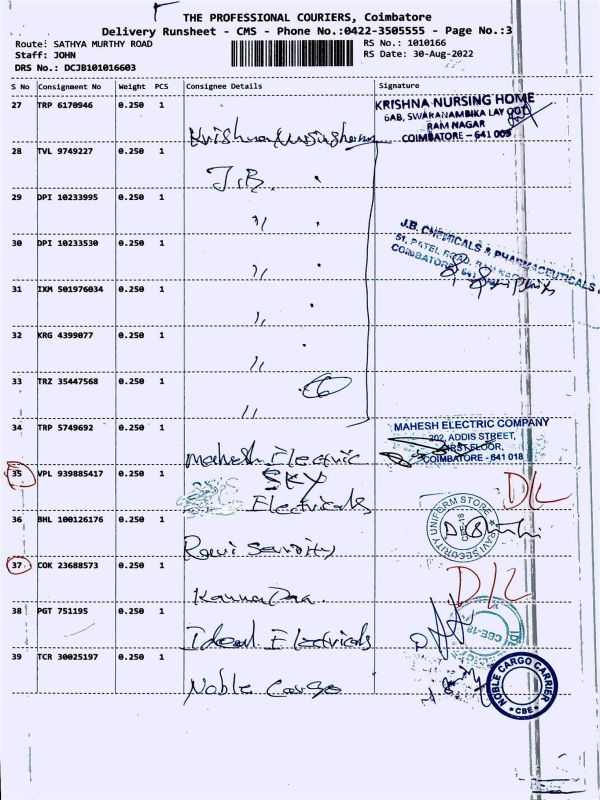 THE PROFESSIONAL COURIERS, Coimbatore
Delivery Runsheet - CMS - Phone No.:0422-3505555 - Page No.:3
Route: SATHYA MURTHY ROAD
RS No.: 1010166
Staff: JOHN
RS Date: 30-Aug-2022
DRS No.: DCJB101016603
S No Consignment No Weight PCS Consignee Details Signature
27 TRP 6170946 0.250 1
Krishna Nursinghome
KRISHNA NURSING HOME
6AB, SWARANAMBIKA LAY OUT
RAM NAGAR
COIMBATORE - 641 009
28 TVL 9749227 0.250 1
J.B.
29 DPI 10233995 0.250 1
"
30 DPI 10233530 0.250 1
"
J.B. CHEMICALS & PHARMACEUTICALS
51, PATEL ROAD, RAM NAGAR
COIMBATORE 641
31 IXM 501976034 0.250 1
"
32 KRG 4399077 0.250 1
"
33 TRZ 35447568 0.250 1
6
"
34 TRP 5749692 0.250 1
Mahesh Electric
MAHESH ELECTRIC COMPANY
302, ADDIS STREET,
FIRST FLOOR,
COIMBATORE - 641 018
35 VPL 939885417 0.250 1
SKY
Electricals
D/L
36 BHL 100126176 0.250 1
Ravi Security
RAVI SECURITY UNIFORM STORE
CBE-18
37 COK 23688573 0.250 1
D/L
38 PGT 751195 0.250 1
Ideal Electricals
CBE-18
39 TCR 30025197 0.250 1
Noble Cargo
NOBLE CARGO CARRIER
* CBE *